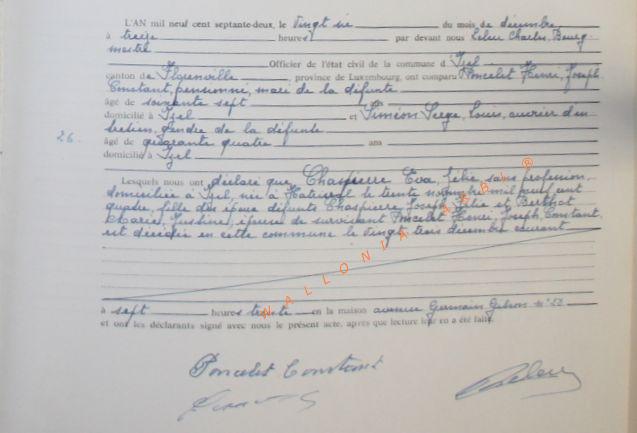 L'AN mil neuf cent septante-deux, le vingt six du mois de décembre
à treize heures par devant nous Leleu Charles, Bourg-
mestre
Officier de l'état civil de la commune d'Izel
canton de Florenville, province de Luxembourg, ont comparu Poncelet Henri, Joseph
Constant, pensionné, mari de la défunte
âgé de soixante sept ans
domicilié à Izel et Siméon Serge, Louis, ouvrier d'en-
tretien, gendre de la défunte
26. âgé de quarante quatre ans
domicilié à Izel
Lesquels nous ont déclaré que Chaspierre Eva, Lélie, sans profession
domiciliée à Izel, née à le trente novembre mil neuf cent
quatre, fille des époux défunts Chaspierre Joseph, et Berthot
Maria, Justine, épouse de survivant Poncelet Henri, Joseph, Constant
est décédée en cette commune le vingt trois décembre courant
WALLONIA ASBL ®
à sept heures trente en la maison avenue Germain Gilson n° 52
et ont les déclarants signé avec nous le présent acte, après que lecture leur en a été faite.
Poncelet Constant
Leleu